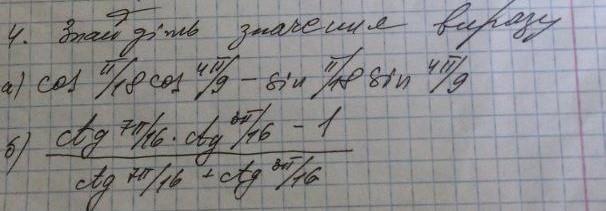 4. Знайдіть значення виразу
а) cos π/18 cos 4π/9 - sin π/18 sin 4π/9
б) ctg 7π/16 · ctg 3π/16 - 1
ctg 7π/16 + ctg 3π/16